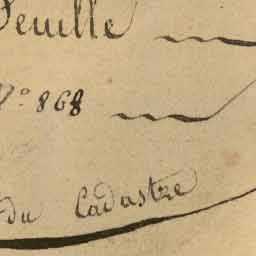 Feuille
N° 868
du Cadastre